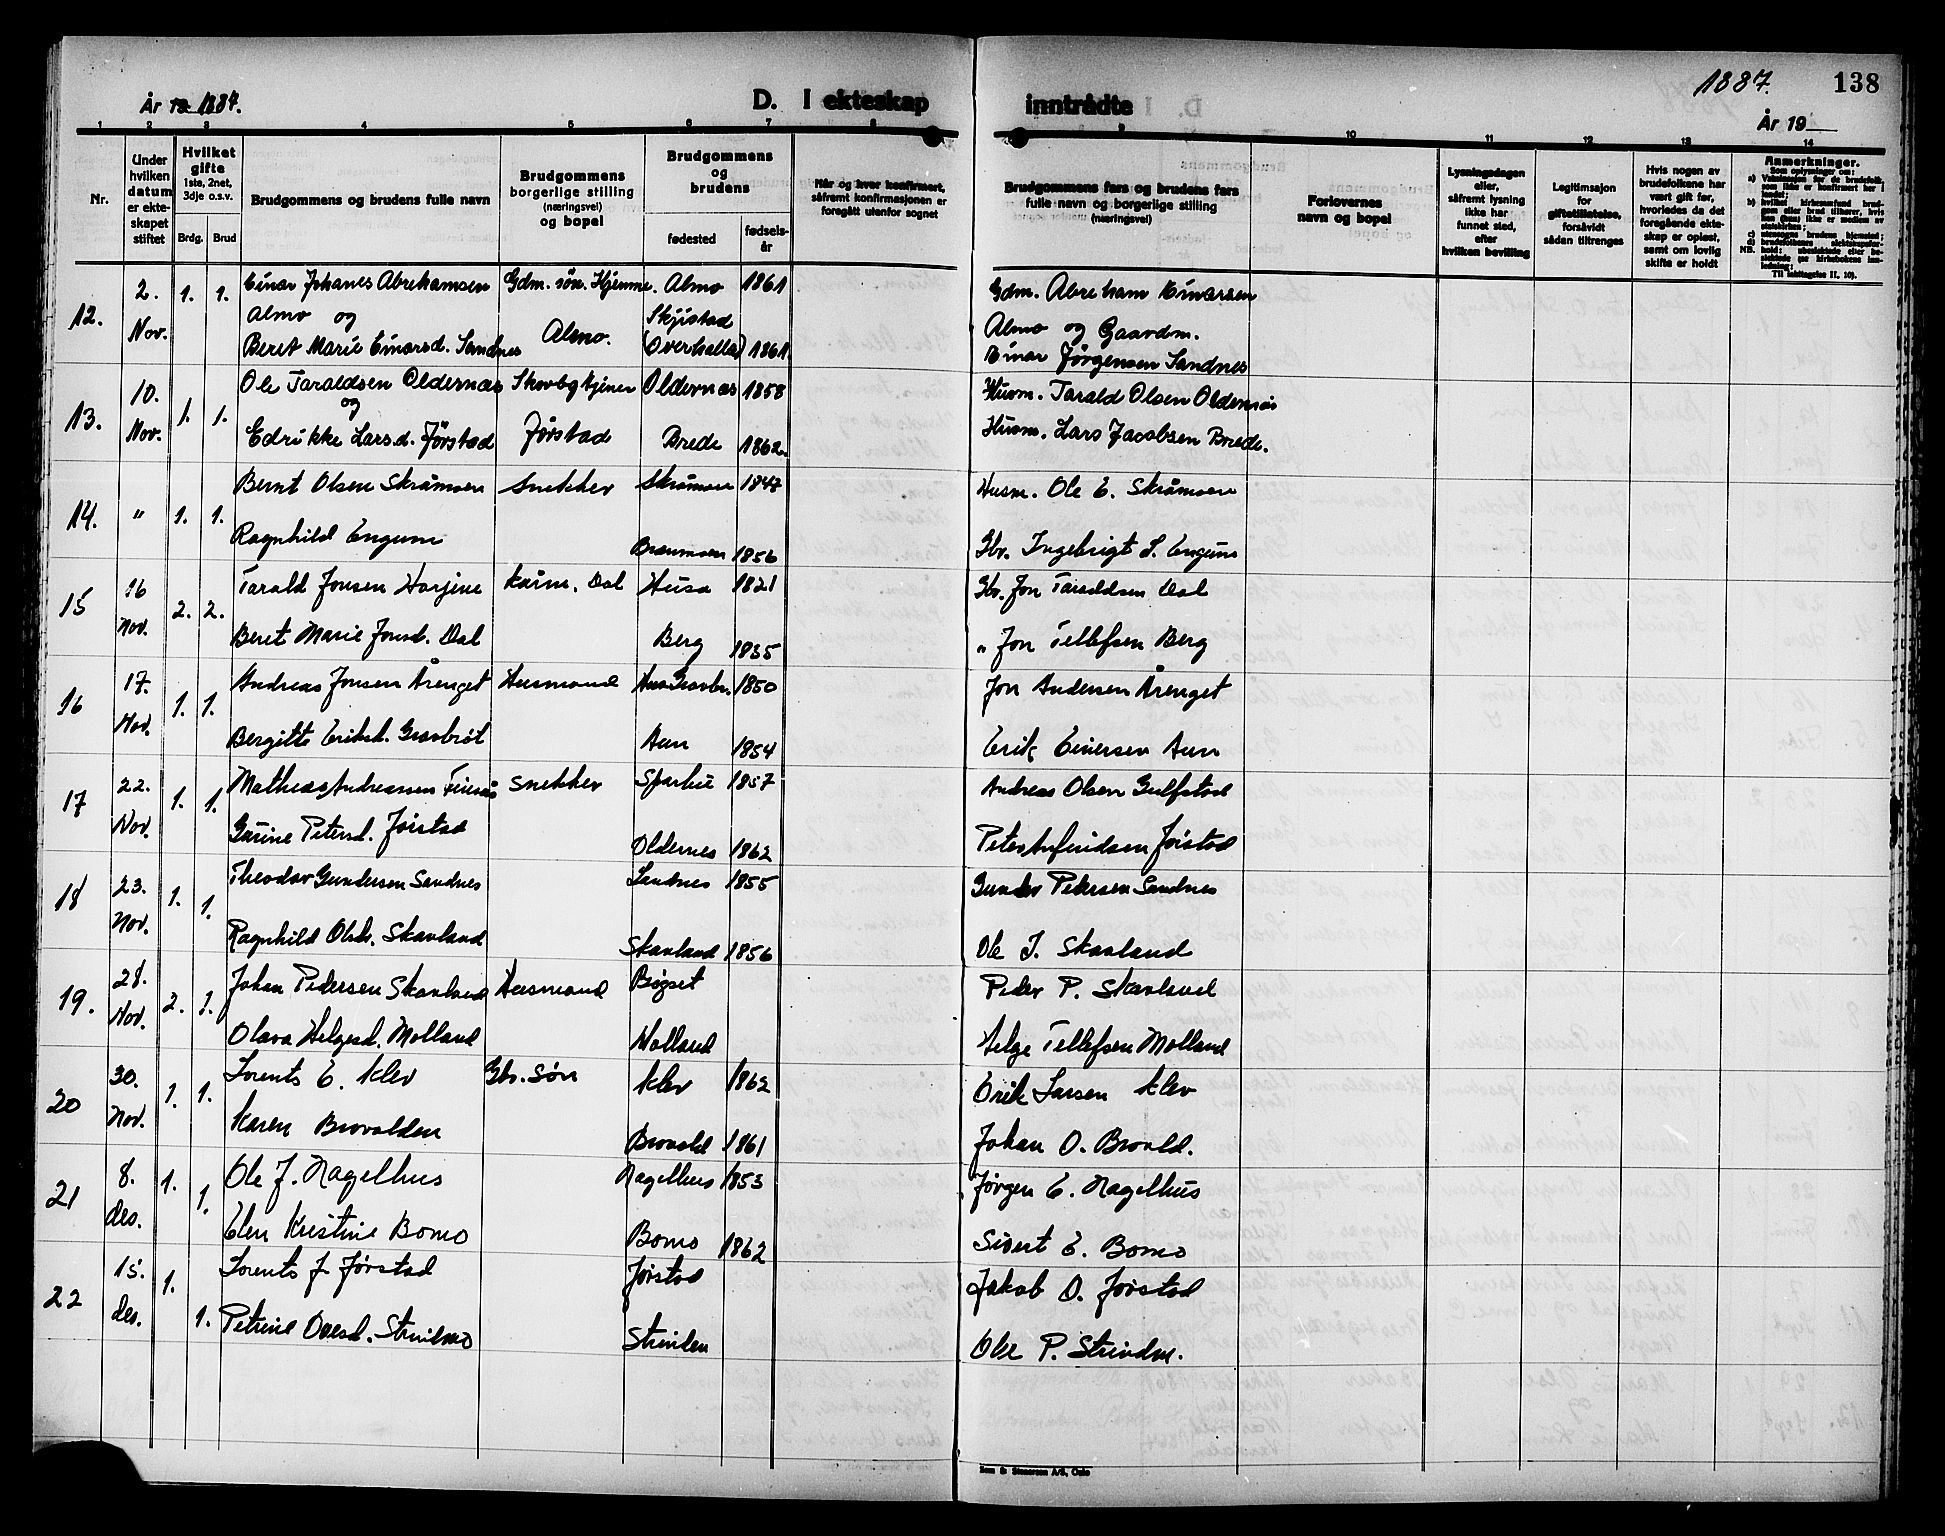 År 19 1887.
D. I ekteskap
inntrådte
1887.
138
År 19
1 2 3 4 5 6 7 8
9 10 11 12 13 14
Nr.
Under hvilken datum er ekteskapet stiftet
Hvilket gifte
1ste, 2net, 3dje o.s.v.
Brdg. Brud
Brudgommens og brudens fulle navn
Brudgommens borgerlige stilling (næringsvei) og bopel
Brudgommens og brudens
fødested
fødselsår
Når og hvor konfirmert, såfremt konfirmasjonen er foregått utenfor sognet
Brudgommens fars og brudens fars fulle navn og borgerlige stilling (næringsvei)
Forlovernes navn og bopel
Lysningsdagen eller, såfremt lysning ikke har funnet sted, efter hvilken bevilling
Legitimasjon for giftetillatelse, forsåvidt sådan tiltrenges
Hvis nogen av brudefolkene har vært gift før, hvorledes da det foregående ekteskap er opløst, samt om lovlig skifte er holdt
Anmerkninger.
Som oplysninger om:
12. 2. Nov. 1. 1. Einar Johanes Abrehamsen Gdm. søn. Hjemme. Almo 1861 Gdm. Abreham Einarsen
Almo og Almo. Skjistad Almo og Gaardm.
Beret Marie Einarsd. Sandnes (Overhalla) 1861. Einar Jørgensen Sandnes
13. 10. Nov. 1. 1. Ole Taraldsen Oldernæs Oldernæs 1858 Husm. Tarald Olsen Oldernæs
og
Edrikke Larsd. Jørstad Jørstad Brede 1862. Husm. Lars Jacobsen Brede.
14. " 1. 1. Bernt Olsen Skråmoen Snekker Skråmoen 1847 Husm. Ole E. Skråmoen
Ragnhild Engum 1856 Gbr. Ingebrigt S. Engum
15 16 Nov. 2. 2. Tarald Jonsen Dal Husa 1821 Gbr. Jon Taraldsen Dal
Beret Marie Jonsd. Dal Berg 1835 " Jon Tellefsen Berg
16 17. Nov. 1. 1. Andreas Jonsen Årenget Husmand 1850 Jon Andersen Årenget
Bergitte Eriksd. Gravbrøt Aun 1854 Erik Einersen Aun
17 22. Nov. 1. 1. Mathias Andreassen Snekker 1857 Andreas Olsen Gulfstad
Petersd. Jørstad Oldernes 1862 Peter Anfindsen Jørstad
18 23. Nov. 1. 1. Theodor Gundersen Sandnes Sandnes 1855 Gunder Pedersen Sandnes
Ragnhild Olsdr. Skavland Skavland 1856 Ole J. Skavland
19. 28. Nov. 2. 1. Johan Pedersen Skavland Husmand Bøgset Peder P. Skavland
Olava Helgesd. Molland Molland Helge Tellefsen Molland
20 30. Nov. 1. 1. Lorents E. Klev Gbr. Søn Klev 1862 Erik Larsen Klev
Karen Brovolden Brovold 1861 Johan O. Brovld.
21 8. des. 1. 1. Ole J. Nagelhus Nagelhus 1853 Jørgen E. Nagelhus
Elen Kristine Bomo Bomo 1862 Sivert E. Bomo
22 15. des. 1. 1. Lorents J Jørstad Jørstad Jakob O. Jørstad
Petrine Olesd. Strindmo Strinden Ole P. Strindm.
Sem & Stenersen A/S, Oslo